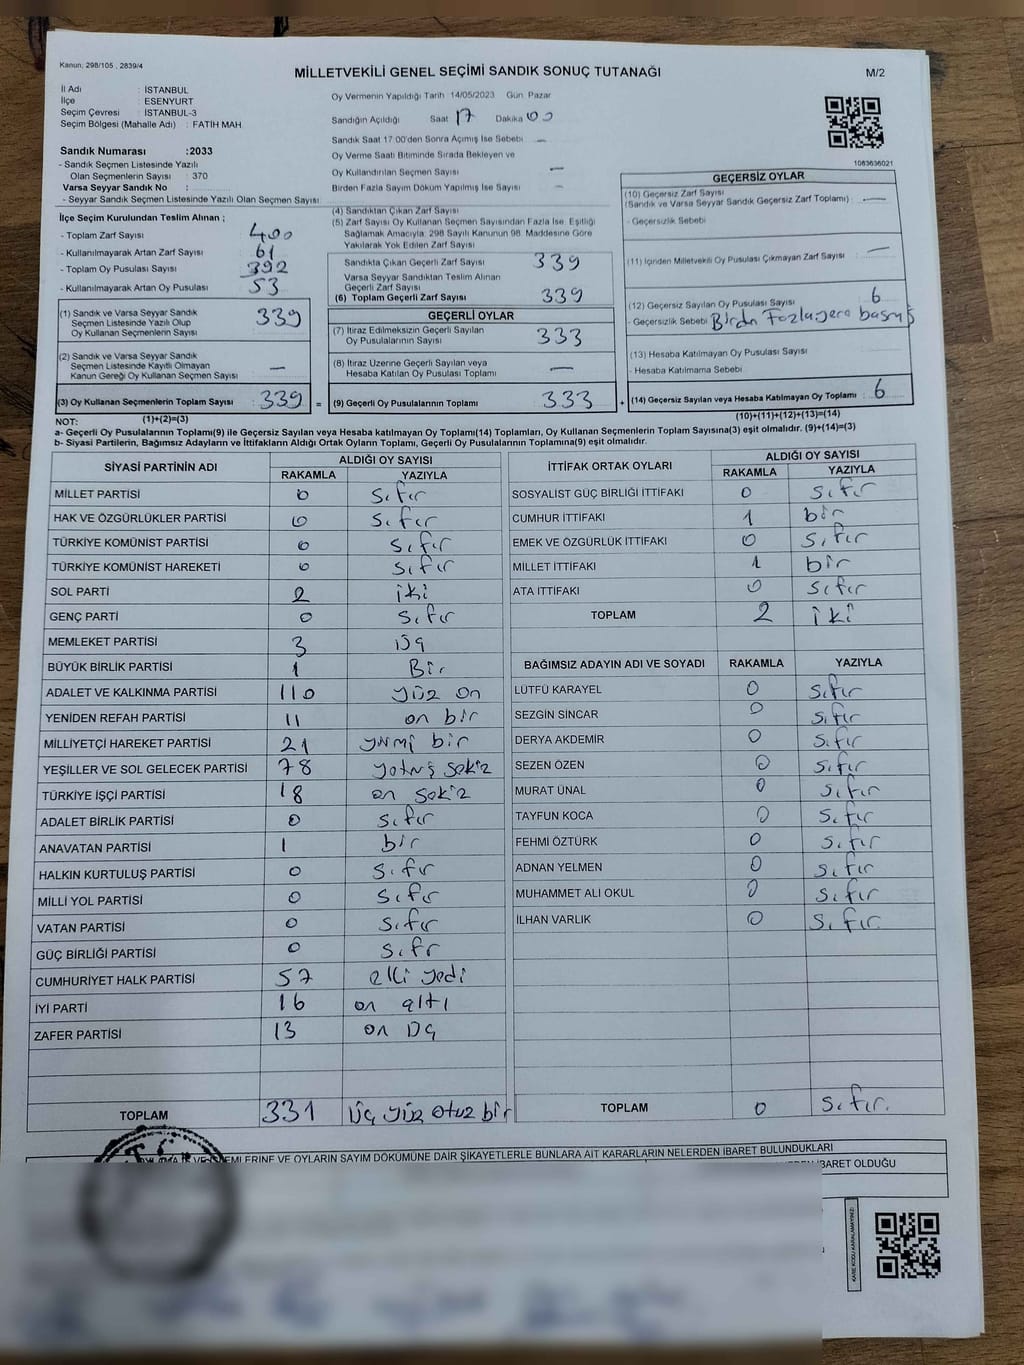 Kanun; 298/105 , 2839/4
MİLLETVEKİLİ GENEL SEÇİMİ SANDIK SONUÇ TUTANAĞI
M/2
İl Adı : İSTANBUL
İlçe : ESENYURT
Seçim Çevresi : İSTANBUL-3
Seçim Bölgesi (Mahalle Adı) : FATİH MAH.
Sandık Numarası :2033
- Sandık Seçmen Listesinde Yazılı
Olan Seçmenlerin Sayısı : 370
Varsa Seyyar Sandık No :
- Seyyar Sandık Seçmen Listesinde Yazılı Olan Seçmen Sayısı
İlçe Seçim Kurulundan Teslim Alınan ;
- Toplam Zarf Sayısı : 400
- Kullanılmayarak Artan Zarf Sayısı : 61
- Toplam Oy Pusulası Sayısı : 392
- Kullanılmayarak Artan Oy Pusulası : 53
(1) Sandık ve Varsa Seyyar Sandık
Seçmen Listesinde Yazılı Olup
Oy Kullanan Seçmenlerin Sayısı : 339
(2) Sandık ve Varsa Seyyar Sandık
Seçmen Listesinde Kayıtlı Olmayan
Kanun Gereği Oy Kullanan Seçmen Sayısı : —
(3) Oy Kullanan Seçmenlerin Toplam Sayısı : 339 =
(1)+(2)=(3)
Oy Vermenin Yapıldığı Tarih 14/05/2023 Gün Pazar
Sandığın Açıldığı Saat 17 Dakika 00
Sandık Saat 17:00'den Sonra Açılmış İse Sebebi —
Oy Verme Saati Bitiminde Sırada Bekleyen ve
Oy Kullandırılan Seçmen Sayısı —
Birden Fazla Sayım Döküm Yapılmış İse Sayısı —
(4) Sandıktan Çıkan Zarf Sayısı
(5) Zarf Sayısı Oy Kullanan Seçmen Sayısından Fazla İse, Eşitliği
Sağlamak Amacıyla, 298 Sayılı Kanunun 98. Maddesine Göre
Yakılarak Yok Edilen Zarf Sayısı
Sandıkta Çıkan Geçerli Zarf Sayısı 339
Varsa Seyyar Sandıktan Teslim Alınan
Geçerli Zarf Sayısı
(6) Toplam Geçerli Zarf Sayısı 339
GEÇERLİ OYLAR
(7) İtiraz Edilmeksizin Geçerli Sayılan
Oy Pusulalarının Sayısı 333
(8) İtiraz Üzerine Geçerli Sayılan veya
Hesaba Katılan Oy Pusulası Toplamı —
(9) Geçerli Oy Pusulalarının Toplamı 333 +
1083636021
GEÇERSİZ OYLAR
(10) Geçersiz Zarf Sayısı
(Sandık ve Varsa Seyyar Sandık Geçersiz Zarf Toplamı) : —
- Geçersizlik Sebebi
(11) İçinden Milletvekili Oy Pusulası Çıkmayan Zarf Sayısı : —
(12) Geçersiz Sayılan Oy Pusulası Sayısı 6
- Geçersizlik Sebebi Birdn Fazla yere basmış
(13) Hesaba Katılmayan Oy Pusulası Sayısı
- Hesaba Katılmama Sebebi
(14) Geçersiz Sayılan veya Hesaba Katılmayan Oy Toplamı : 6
(10)+(11)+(12)+(13)=(14)
NOT:
a- Geçerli Oy Pusulalarının Toplamı(9) ile Geçersiz Sayılan veya Hesaba Katılmayan oy Toplamı(14) Toplamları, Oy Kullanan Seçmenlerin Toplam Sayısına(3) eşit olmalıdır. (9)+(14)=(3)
b- Siyasi Partilerin, Bağımsız Adayların ve İttifakların Aldığı Ortak Oyların Toplamı, Geçerli Oy Pusulalarının Toplamına(9) eşit olmalıdır.
SİYASİ PARTİNİN ADI ALDIĞI OY SAYISI
RAKAMLA YAZIYLA
MİLLET PARTİSİ 0 Sıfır
HAK VE ÖZGÜRLÜKLER PARTİSİ 0 Sıfır
TÜRKİYE KOMÜNİST PARTİSİ 0 Sıfır
TÜRKİYE KOMÜNİST HAREKETİ 0 Sıfır
SOL PARTİ 2 iki
GENÇ PARTİ 0 Sıfır
MEMLEKET PARTİSİ 3 üç
BÜYÜK BİRLİK PARTİSİ 1 Bir
ADALET VE KALKINMA PARTİSİ 110 yüz on
YENİDEN REFAH PARTİSİ 11 on bir
MİLLİYETÇİ HAREKET PARTİSİ 21 yirmi bir
YEŞİLLER VE SOL GELECEK PARTİSİ 78 yetmiş sekiz
TÜRKİYE İŞÇİ PARTİSİ 18 on sekiz
ADALET BİRLİK PARTİSİ 0 Sıfır
ANAVATAN PARTİSİ 1 bir
HALKIN KURTULUŞ PARTİSİ 0 Sıfır
MİLLİ YOL PARTİSİ 0 Sıfır
VATAN PARTİSİ 0 Sıfır
GÜÇ BİRLİĞİ PARTİSİ 0 Sıfr
CUMHURİYET HALK PARTİSİ 57 elli yedi
İYİ PARTİ 16 on altı
ZAFER PARTİSİ 13 on üç
TOPLAM 331 üç yüz otuz bir
İTTİFAK ORTAK OYLARI ALDIĞI OY SAYISI
RAKAMLA YAZIYLA
SOSYALİST GÜÇ BİRLİĞİ İTTİFAKI 0 Sıfır
CUMHUR İTTİFAKI 1 bir
EMEK VE ÖZGÜRLÜK İTTİFAKI 0 Sıfır
MİLLET İTTİFAKI 1 bir
ATA İTTİFAKI 0 Sıfır
TOPLAM 2 iki
BAĞIMSIZ ADAYIN ADI VE SOYADI RAKAMLA YAZIYLA
LÜTFÜ KARAYEL 0 Sıfır
SEZGİN SİNCAR 0 Sıfır
DERYA AKDEMİR 0 Sıfır
SEZEN ÖZEN 0 Sıfır
MURAT ÜNAL 0 Sıfır
TAYFUN KOCA 0 Sıfır
FEHMİ ÖZTÜRK 0 Sıfır
ADNAN YELMEN 0 Sıfır
MUHAMMET ALİ OKUL 0 Sıfır
İLHAN VARLIK 0 Sıfır.
TOPLAM 0 Sıfır.
VE OYLARIN SAYIM DÖKÜMÜNE DAİR ŞİKAYETLERLE BUNLARA AİT KARARLARIN NELERDEN İBARET BULUNDUKLARI
İBARET OLDUĞU
KARE KODU KARALAMAYINIZ!